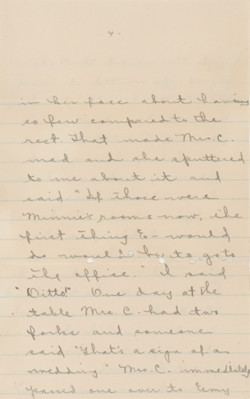 4.
in her face about having
so few compared to the
rest. That made Mrs. C.
mad and she sputtered
to me about it and
said "If those were
Minnie's rooms now, the
first thing to would
do would be to go to
the office." I said
"Ditto!" One day at the
table Mrs. C. had two
forks and someone
said "that's a sign of a
wedding." Mrs. C. immediately
passed one over to Emy